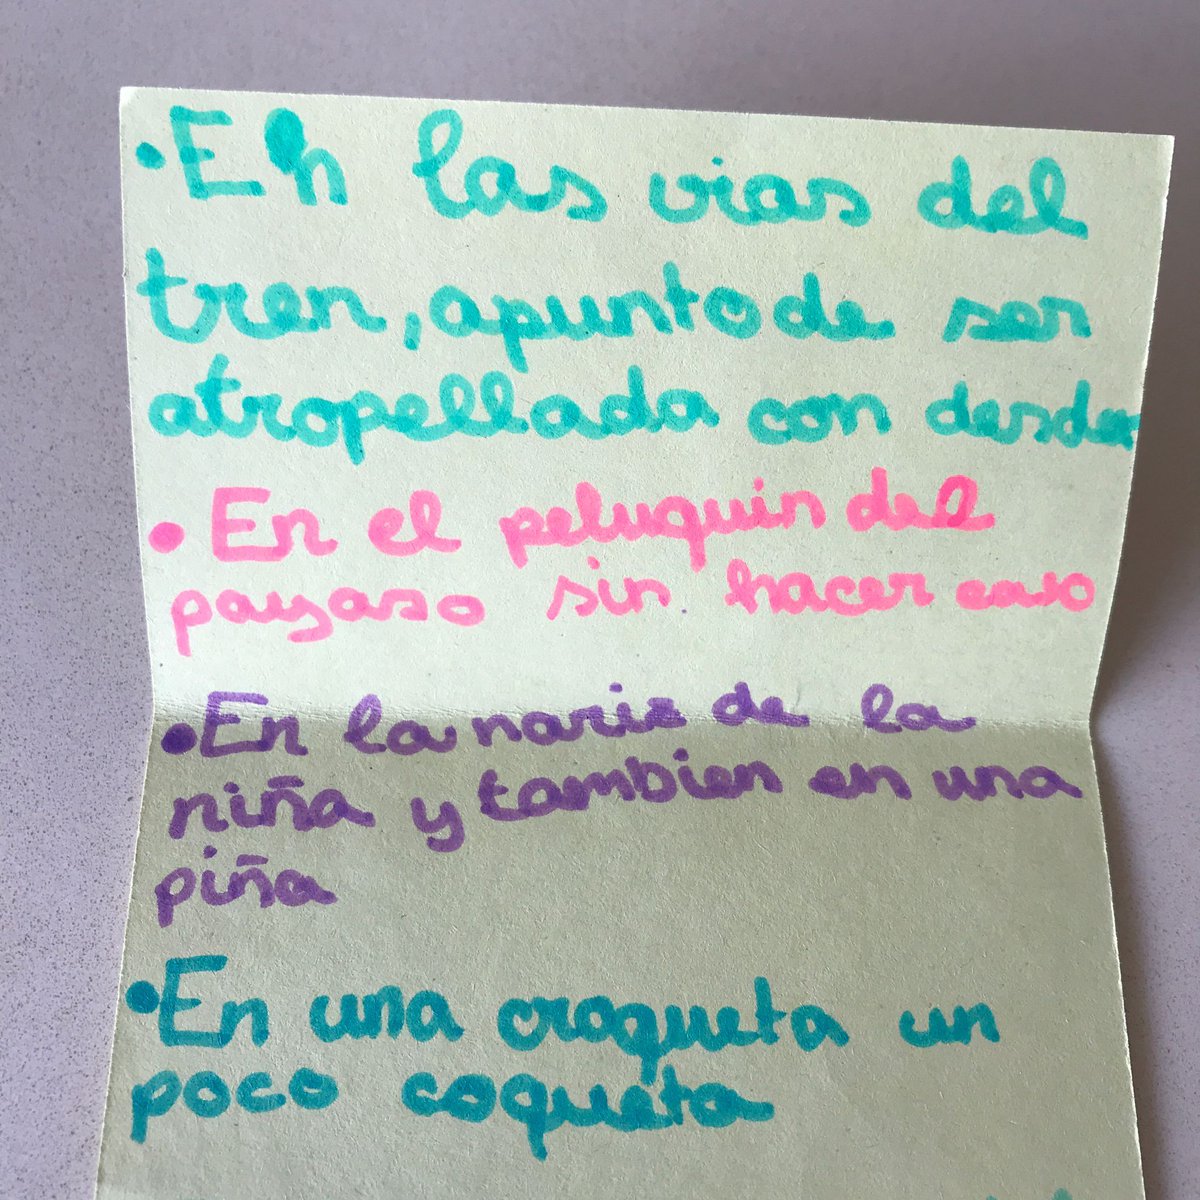 •En las vias del
tren, apunto de ser
atropellada con desden
• En el peluquin del
payaso sin hacer caso
•En la narie de la
niña y tambien en una
piña
•En una croqueta un
poco coqueta